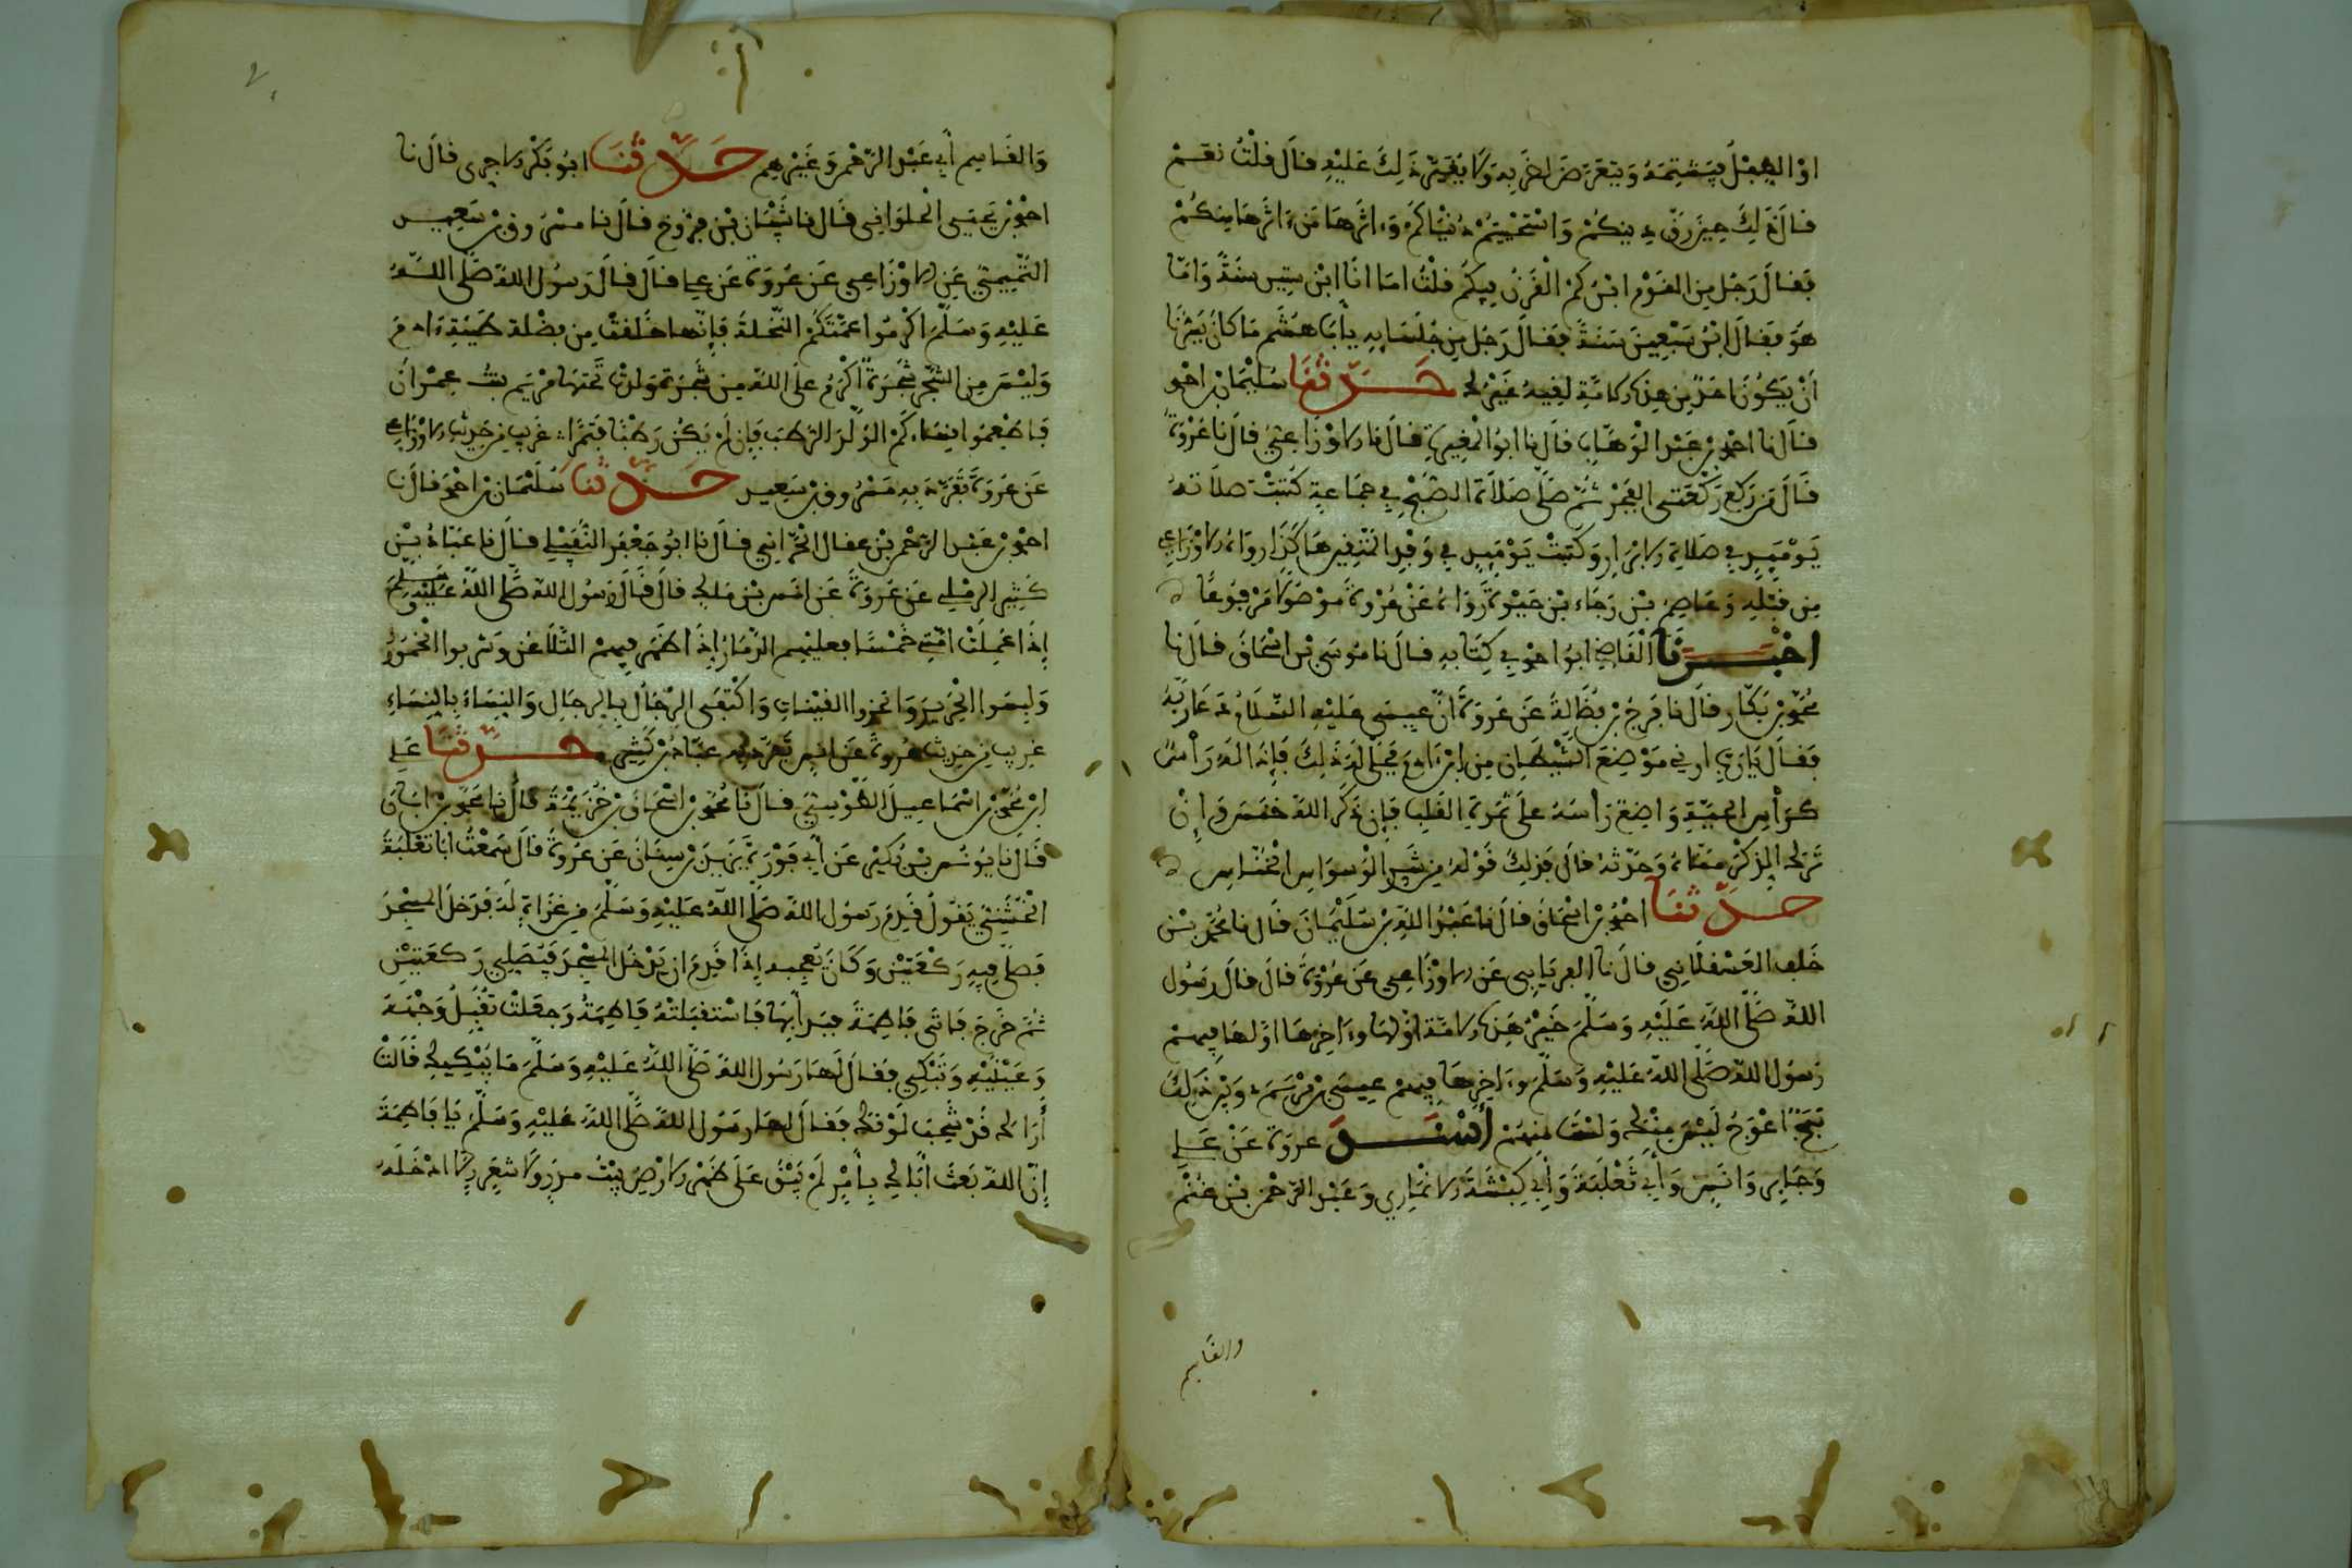 اوْ الرجل فيشتمه ويتعرض لضربه ولا يغير ذلك عليه قال قلت نعم
قال ذلك حين رق دينكم واستحببتم دنياكم وءاثرها من ءاثرها منكم
فقال رجل من القوم ابن كم القرن فيكم قلت اما انا ابن ستين سنة واما
هو فقال ابن سبعين سنة فقال رجل من جلسايه يأبا هشم ما كان يسرنا
أن يكون احد من هذه الامة لقيه غيرك حدثنا سليمان بن احمد
قال نا احمد بن عبد الوهاب قال نا ابو المغيرة قال نا الاوزاعي قال نا عروة
قال من ركع ركعتي الفجر ثم صلى صلاة الصبح في جماعة كتبت صلاته
يوميذ في صلاة الابرار وكتبت يوميذ في وفد المتقين هكذا رواه الاوزاعي
من قبله وعاصم بن رجاء بن حيوة رواه عن عروة موصولا مرفوعا
اخبرنا القاضي ابو احمد في كتابه قال نا موسى بن اسحاق قال نا
محمد بن بكار قال نا فرج بن فضالة عن عروة ان عيسى عليه السلام دعا ربه
فقال يا رب ارني موضع الشيطان من ابن ءادم فجلى له ذلك فإذا له رأس
كرأس الحية واضع رأسه على ثمرة القلب فإن ذكر الله خنس وان
ترك الذكر مناه وحدثه قال فذلك قوله من شر الوسواس الخناس
حدثنا احمد بن اسحاق قال نا عبد الله بن سليمان قال نا محمد بن
خلف العسقلاني قال نا الفريابي عن الاوزاعي عن عروة قال قال رسول
الله صلى الله عليه وسلم خير هذه الامة اولها وءاخرها اولها فيهم
رسول الله صلى الله عليه وسلم وءاخرها فيهم عيسى بن مريم وبين ذلك
ثبج اعوج ليس منك ولست منهم أسند عروة عن علي
وجابر وانس وأبي ثعلبة وأبي كبشة الانماري وعبد الرحمن بن غنم
والقاسم
والقاسم أبي عبد الرحمن وغيرهم حدثنا ابو بكر الاجري قال نا
احمد بن يحيى الحلواني قال نا شيبان بن فروخ قال نا مسرور بن سعيد
التميمي عن الاوزاعي عن عروة عن علي قال قال رسول الله صلى الله
عليه وسلم اكرموا عمتكم النخلة فإنها خلقت من فضلة طينة ءادم
وليس من الشجر شجرة اكرم على الله من شجرة ولدت تحتها مريم بنت عمران
فاطعموا نساءكم الولد الرطب فإن لم يكن رطبا فتمرا غريب من حديث الاوزاعي
عن عروة تفرد به مسرور بن سعيد حدثنا سليمان بن احمد قال نا
احمد بن عبد الرحمن بن عقال الحراني قال نا ابو جعفر النفيلي قال نا عباد بن
كثير الرملي عن عروة عن انس بن ملك قال قال رسول الله صلى الله عليه وسلم
إذا عملت امتي خمسا فعليهم الدمار إذا ظهر فيهم التلاعن وشربوا الخمور
ولبسوا الحرير واتخذوا القينات واكتفى الرجال بالرجال والنساء بالنساء
غريب من حديث عروة عن انس تفرد به عباد بن كثير حدثنا علي
ابن محمد بن اسماعيل الطوسي قال نا محمد بن اسحاق بن خزيمة قال نا محمد بن ابان
قال نا يونس بن بكير عن أبي فروة يزيد بن سنان عن عروة قال سمعت ابا ثعلبة
الخشني يقول قدم رسول الله صلى الله عليه وسلم من غزاة له فدخل المسجد
فصلى فيه ركعتين وكان يعجبه إذا قدم ان يدخل المسجد فيصلي ركعتين
ثم خرج فاتى فاطمة فبدأ بها فاستقبلته فاطمة وجعلت تقبل وجهه
وعينيه وتبكي فقال لها رسول الله صلى الله عليه وسلم ما يبكيك قالت
أراك قد شحب لونك فقال لها رسول الله صلى الله عليه وسلم يا فاطمة
إن الله بعث اباك بأمر لم يبق على ظهر الارض بيت مدر ولا شعر إلا ادخله